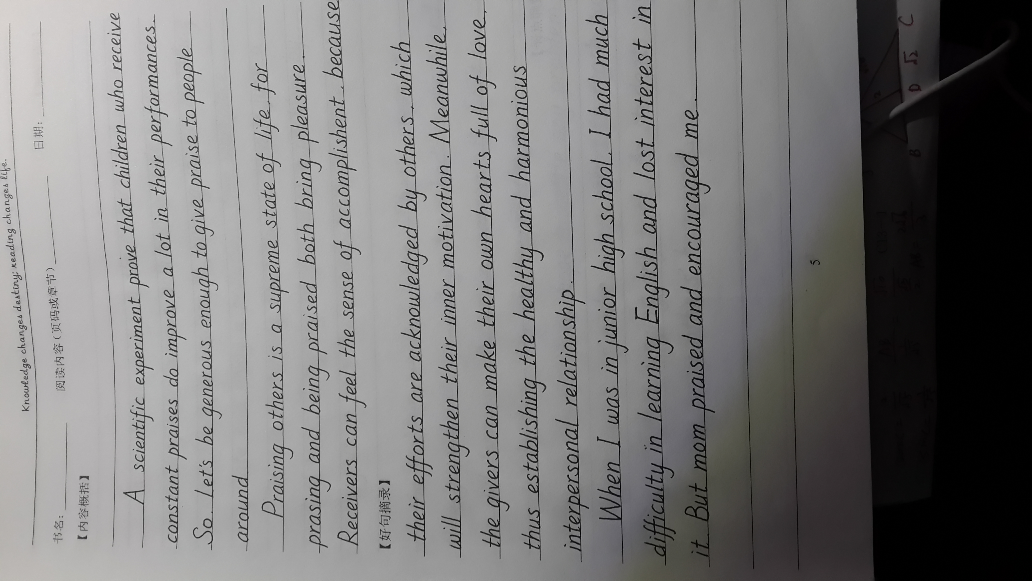 Knowledge changes destiny; reading changes life.
书名: 阅读内容(页码或章节) 日期:
【内容概括】
A scientific experiment prove that children who receive
constant praises do improve a lot in their performances.
So. Let's be generous enough to give praise to people
around
Praising others is a supreme state of life. for
prasing and being praised both bring pleasure.
Receivers can feel the sense of accomplishent. because
【好句摘录】
their efforts are acknowledged by others. which
will strengthen their inner motivation. Meanwhile.
the givers can make their own hearts full of love.
thus establishing the healthy and harmonious
interpersonal relationship.
When I was in junior high school. I had much
difficulty in learning English and lost interest in
it. But mom praised and encouraged me.
5
C
D
B